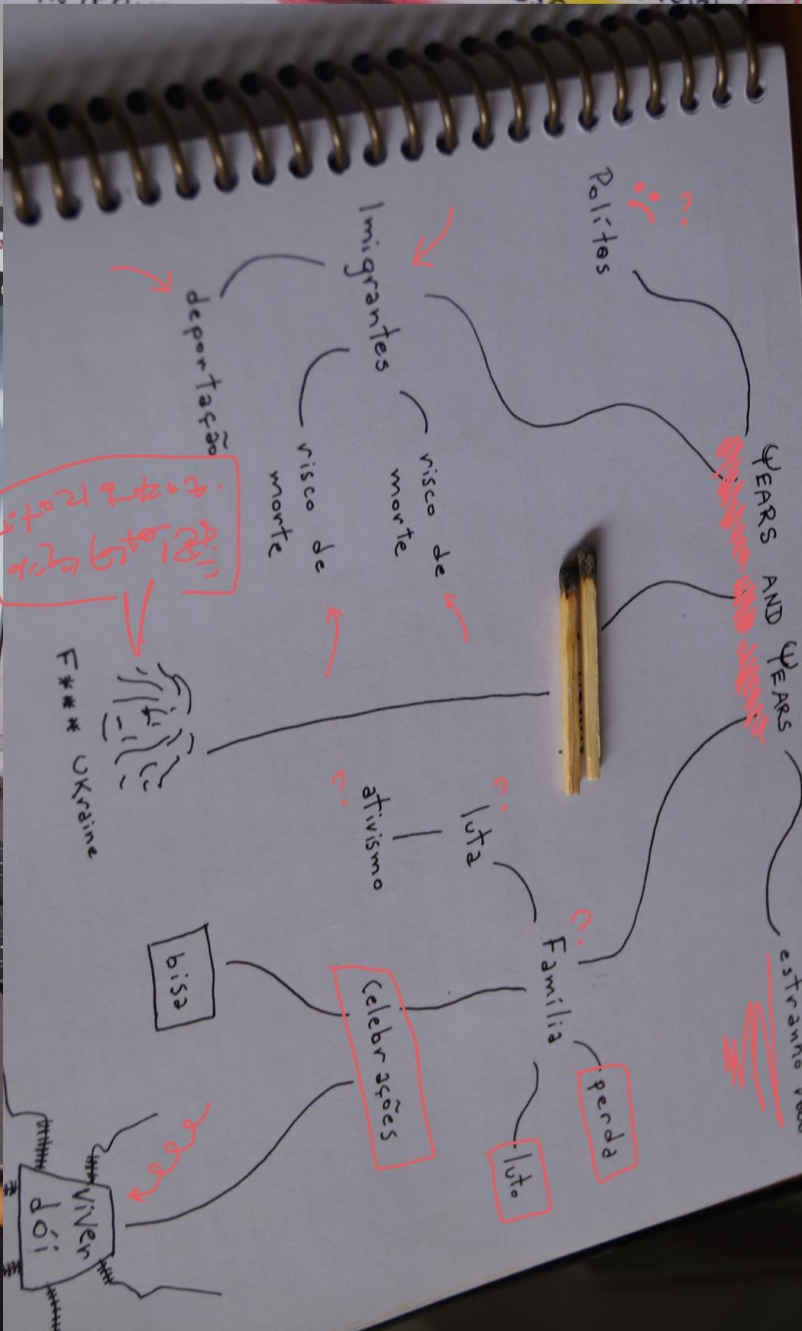 YEARS AND YEARS
estranho
Polítas
?
Imigrantes
deportação
risco de
morte
risco de
morte
F*** UKraine
?
Família
?
luta
ativismo
?
perda
luto
Celebrações
bisa
Viver
dói